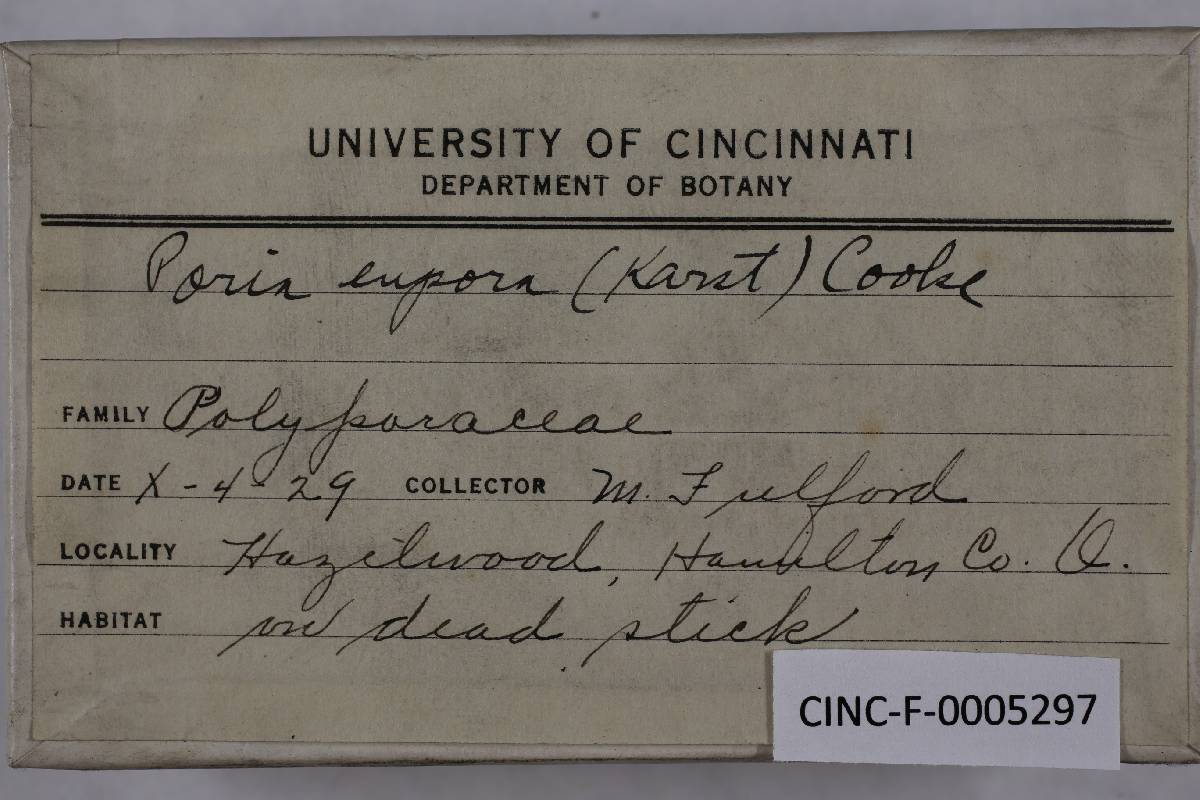 UNIVERSITY OF CINCINNATI
DEPARTMENT OF BOTANY
Poria eupora (Karst) Cooke
FAMILY Polyporaceae
DATE X-4-29 COLLECTOR M. Fulford
LOCALITY Hazelwood, Hamilton Co. O.
HABITAT on dead stick
CINC-F-0005297